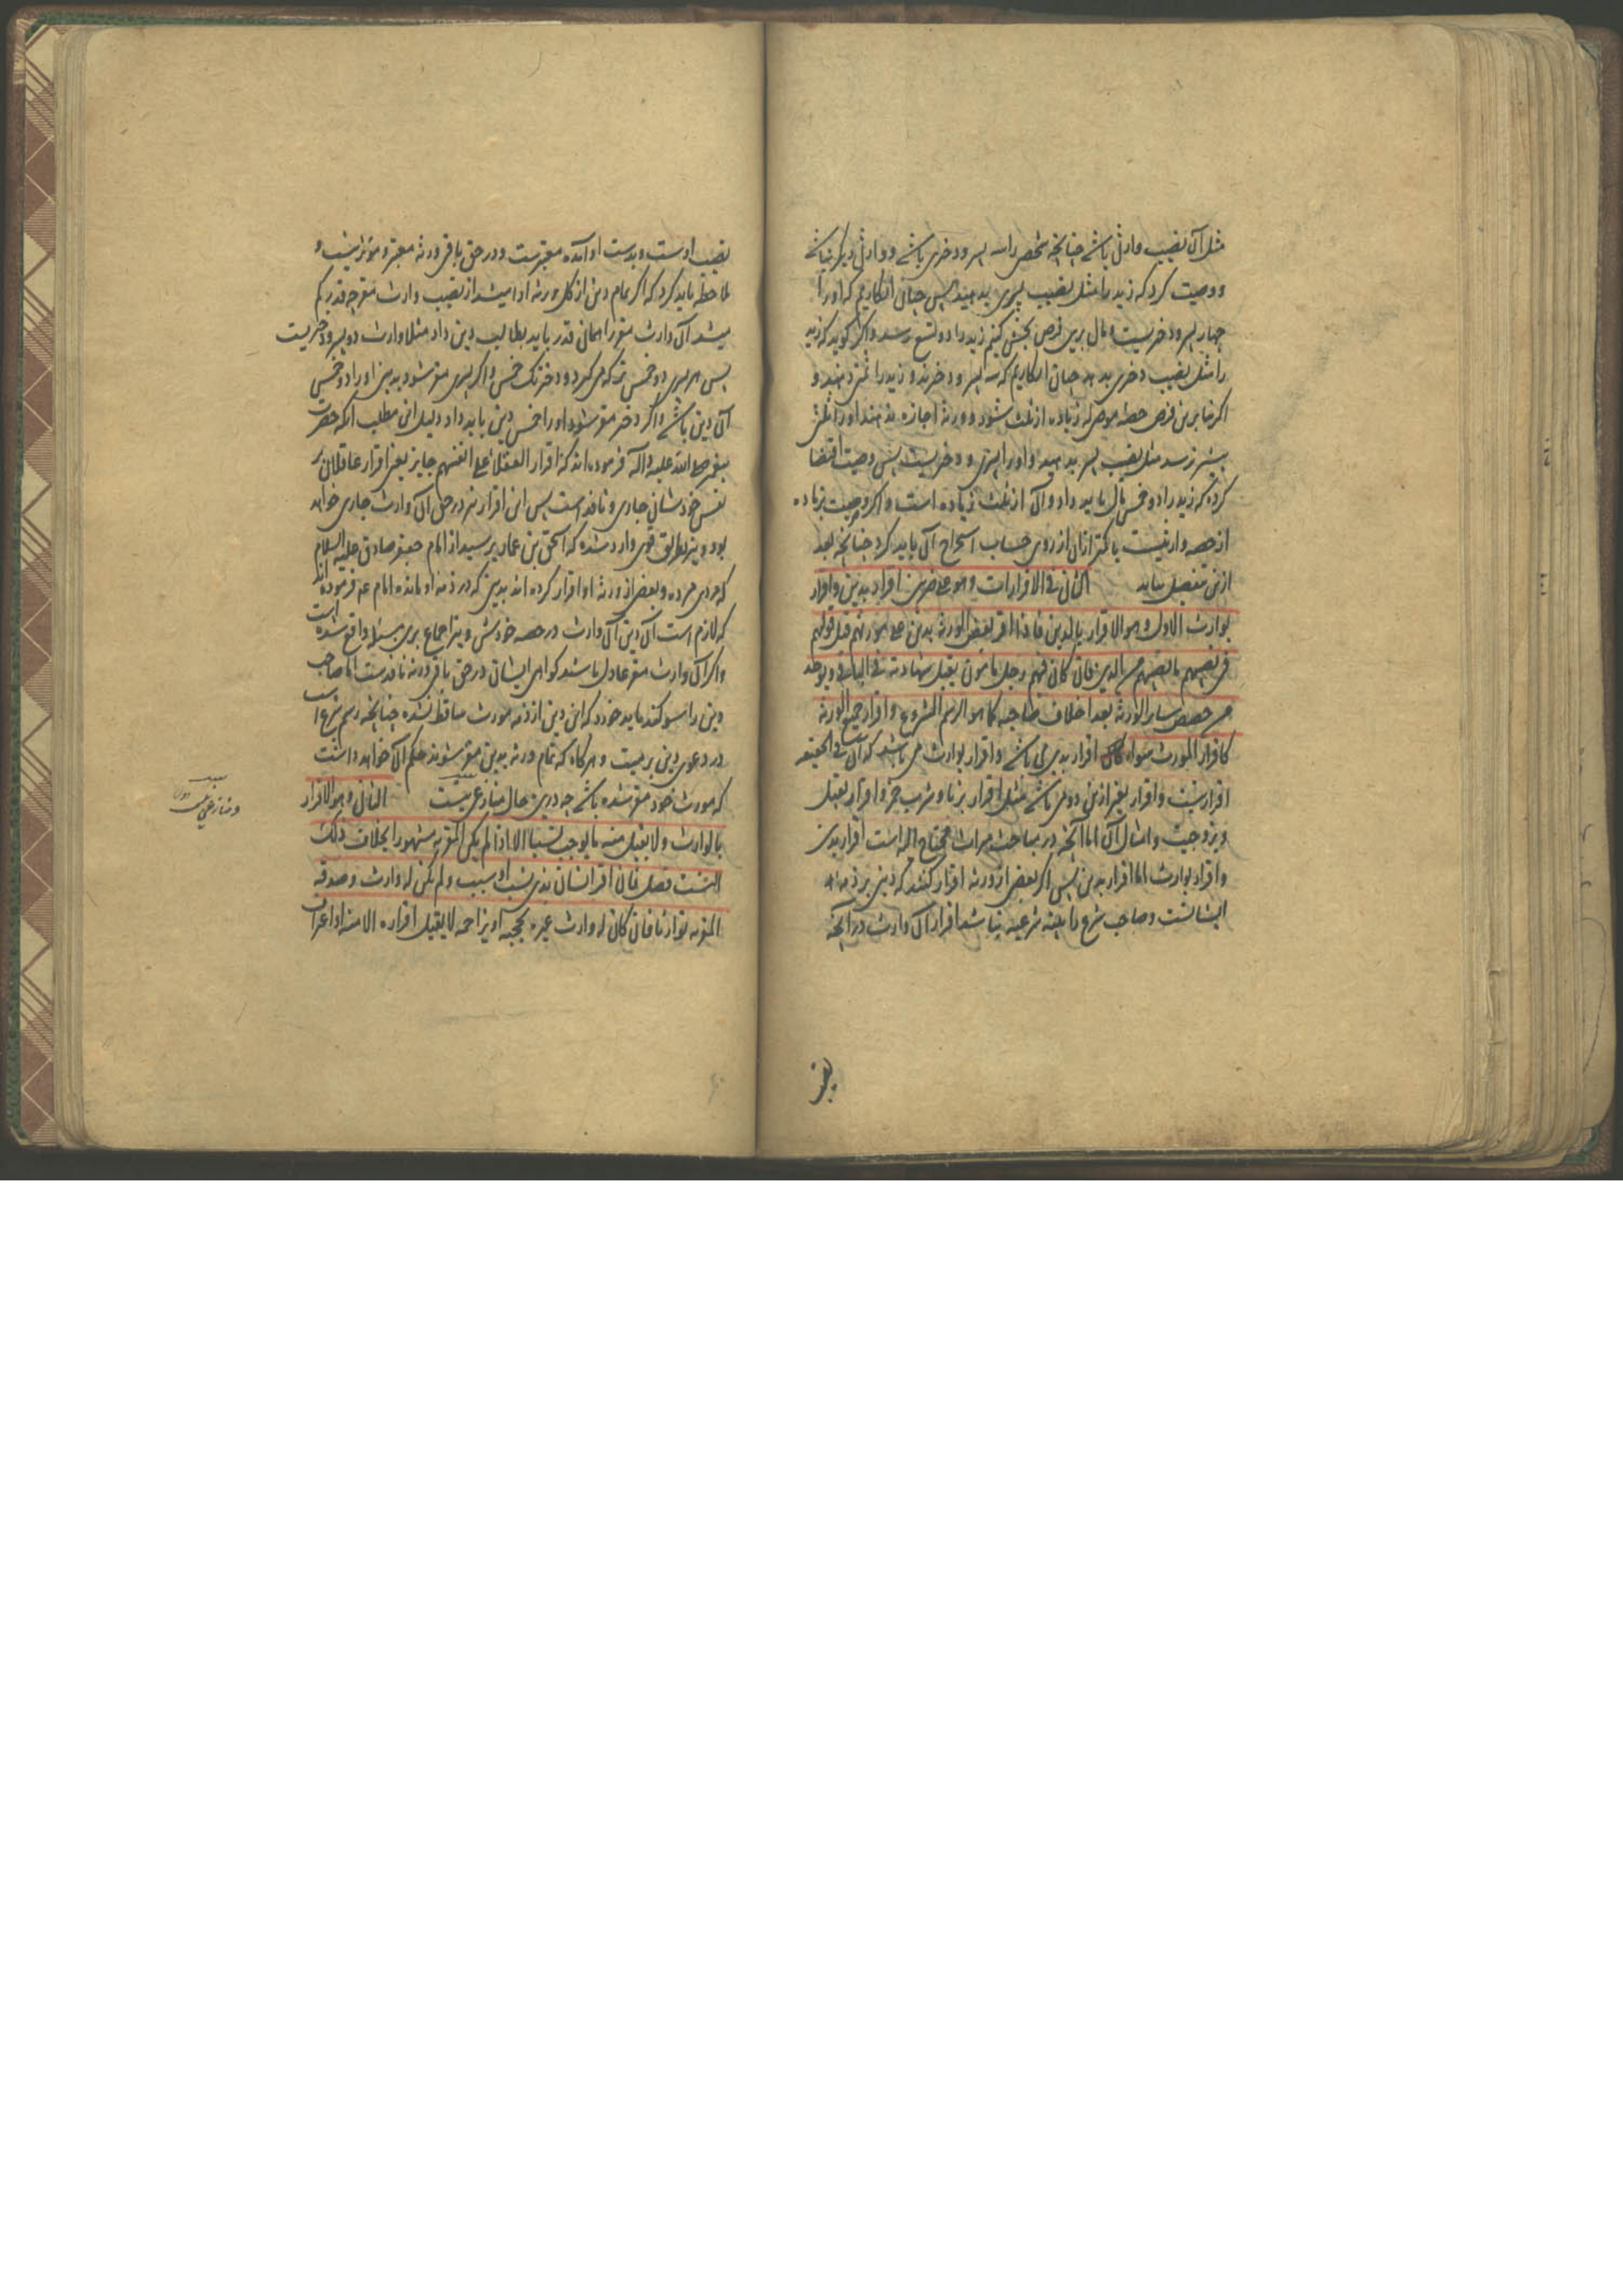 مثل آن نصیب وارثی باشد چنانچه شخصی را سه پسر و دختری باشد و وارثی دیگر نباشد
و وصیت کرد که زید را مثل نصیب پسری بدهید پس چنان انگاریم که او را
چهار پسر و دختریست و مال برین فرض بخش کنیم زید را دو تسع رسد و اگر گوید که زید
را مثل نصیب دختری بدهد چنان انگاریم که سه پسر و دو دخترند و زید را ثمن دهند و
اگر بنابرین فرض حصه موصی له زیاده از ثلث شود و ورثه اجازه ندهند او را ثلث
بیشتر نرسد مثل نصیب پسر بدهید و او را پسری و دختریست پس وصیت اقتضا
کرد که زید را دو خمس مال باید داد و آن از ثلث زیاده است و اگر وصیت بزیاده
از حصه وارثیست یا کمتر از آن از روی حساب استخراج آن باید کرد چنانچه بعد
ازین مفصل بیاید الثانی فی الاقرارات و هو علی ضربین اقرار بدین و اقرار
بوارث الاول و هو الاقرار بالدین فاذا اقر بعض الورثة بدین علی مورثهم قبل قولهم
فی نصیبهم ما یصیبهم من الدین فان کان فیهم رجل مأمون یقبل شهادته فی الباقی و یوخذ
من حصص سایر الورثة بعد احلاف صاحبه کما هو الرسم المشروع و اقرار جمیع الورثة
کاقرار المورث سواء اقرار بدین می باشد و اقرار بوارث می باشد که آن فی الحقیقه
اقرار بنسبت و اقرار بغیر ازین دو می باشد مثل اقرار بزنا و شرب خمر و اقرار بقتل
و بزوجیت و امثال آن اما آنچه در مباحث میراث محتاج الیه است اقرار بدین
و اقرار بوارث اما اقرار بدین پس اگر بعضی از ورثه اقرار کنند که دینی بر ذمه
ایشانست و صاحب شرع را بینه شرعیه نباشد اقرار آن وارث در آنچه
نصیب اوست و بدست او آمده معتبرست و در حق باقی ورثه معتبر و مؤثر نیست و
ملاحظه باید کرد که اگر تمام دین از کل ورثه ادا میشد از نصیب وارث مقر چه قدر کم
میشد آن وارث مقر را همان قدر باید بطالب دین داد مثلا وارث دو پسر و دختریست
پس هر پسری دو خمس ترکه می گیرد و دختر یک خمس و اگر پسری مقر شود بدین او را دو خمس
آن دین باشد و اگر دختر مقر شود او را خمس دین باید داد و دلیل این مطلب آنکه حضرت
پیغمبر صلی الله علیه و اله فرموده اند که اقرار العقلاء علی انفسهم جایز یعنی اقرار عاقلان بر
نفس خودشان جاری و نافذ است پس این اقرار نیز در حق آن وارث جاری خواهد
بود و نیز بطریق قوی وارد شده که اسحق بن عمار پرسید از امام جعفر صادق علیه السلام
که مردی مرده و بعضی از ورثه او اقرار کرده اند بدینی که در ذمه او مانده امام ع فرموده اند
که لازم است آن دین آن وارث در حصه خودش و نیز اجماع برین مسئله واقع شده است
و اگر آن وارث مقر عادل باشد گواهی ایشان در حق باقی ورثه نافذ ست اما صاحب
دین را سوگند باید خورد که این دین از ذمه مورث ساقط نشده چنانچه رسم شرع است
در دعوی دین بر میت و هرگاه که تمام ورثه بدین مقر شوند حکم آن خواهد داشت
که مورث خود مقر شده باشد چه درین حال منازعی نیست الثانی و هو الاقرار
بالوارث و لا یقبل منه ما یوجب نسبا الا اذا لم یکن المقر به مشهورا بخلاف ذلک
النسب فصل فان اقر انسان بذی نسب او سبب و لم یکن له وارث و صدقه
المقر به توارثا فان کان له وارث غیره یحجبه او یزاحمه لا یقبل اقراره الا منه او اعتراف